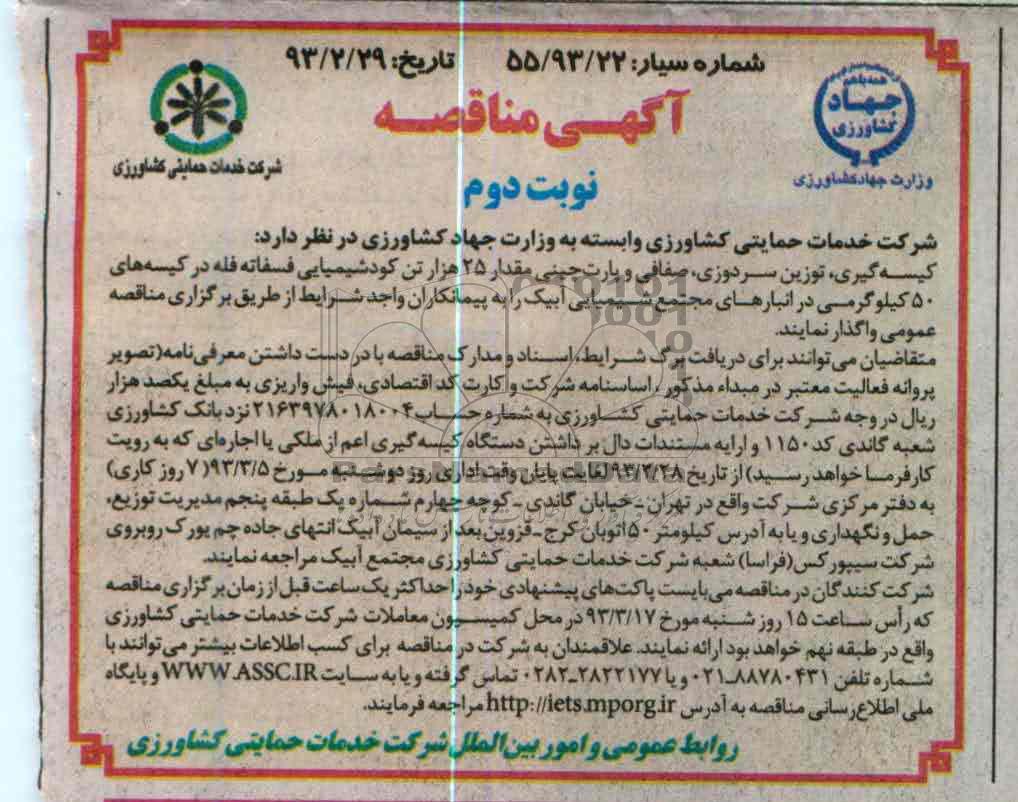 شماره سیار: ۵۵/۹۳/۲۲ تاریخ: ۹۳/۲/۲۹
همه با هم
جهاد
کشاورزی
وزارت جهادکشاورزی
آگهی مناقصه
شرکت خدمات حمایتی کشاورزی
نوبت دوم
شرکت خدمات حمایتی کشاورزی وابسته به وزارت جهاد کشاورزی در نظر دارد:
کیسه‌گیری، توزین سردوزی، صفافی و پارت‌چینی مقدار ۲۵ هزار تن کودشیمیایی فسفاته فله در کیسه‌های
۵۰ کیلوگرمی در انبارهای مجتمع شیمیایی آبیک را به پیمانکاران واجد شرایط از طریق برگزاری مناقصه
عمومی واگذار نمایند.
متقاضیان می‌توانند برای دریافت برگ شرایط، اسناد و مدارک مناقصه با در دست داشتن معرفی‌نامه(تصویر
پروانه فعالیت معتبر در مبداء مذکور، اساسنامه شرکت و کارت کد اقتصادی، فیش واریزی به مبلغ یکصد هزار
ریال در وجه شرکت خدمات حمایتی کشاورزی به شماره حساب ۲۱۶۳۹۷۸۰۱۸۰۰۴ نزد بانک کشاورزی
شعبه گاندی کد ۱۱۵۰ و ارایه مستندات دال بر داشتن دستگاه کیسه‌گیری اعم از ملکی یا اجاره‌ای که به رویت
کارفرما خواهد رسید) از تاریخ ۹۳/۲/۲۸ لغایت پایان وقت اداری روز دوشنبه مورخ ۹۳/۳/۵( ۷ روز کاری)
به دفتر مرکزی شرکت واقع در تهران - خیابان گاندی - کوچه چهارم شماره یک طبقه پنجم مدیریت توزیع،
حمل و نگهداری و یا به آدرس کیلومتر ۵۰ اتوبان کرج - قزوین بعد از سیمان آبیک انتهای جاده چم یورک روبروی
شرکت سیپورکس(فراسا) شعبه شرکت خدمات حمایتی کشاورزی مجتمع آبیک مراجعه نمایند.
شرکت کنندگان در مناقصه می‌بایست پاکت‌های پیشنهادی خود را حداکثر یک ساعت قبل از زمان برگزاری مناقصه
که رأس ساعت ۱۵ روز شنبه مورخ ۹۳/۳/۱۷ در محل کمیسیون معاملات شرکت خدمات حمایتی کشاورزی
واقع در طبقه نهم خواهد بود ارائه نمایند. علاقمندان به شرکت در مناقصه برای کسب اطلاعات بیشتر می‌توانند با
شماره تلفن ۸۸۷۸۰۴۳۱-۰۲۱ و یا ۲۸۲۲۱۷۷-۰۲۸۲ تماس گرفته و یا به سایت WWW.ASSC.IR و پایگاه
ملی اطلاع‌رسانی مناقصه به آدرس http://iets.mporg.ir مراجعه فرمایند.
روابط عمومی و امور بین‌الملل شرکت خدمات حمایتی کشاورزی